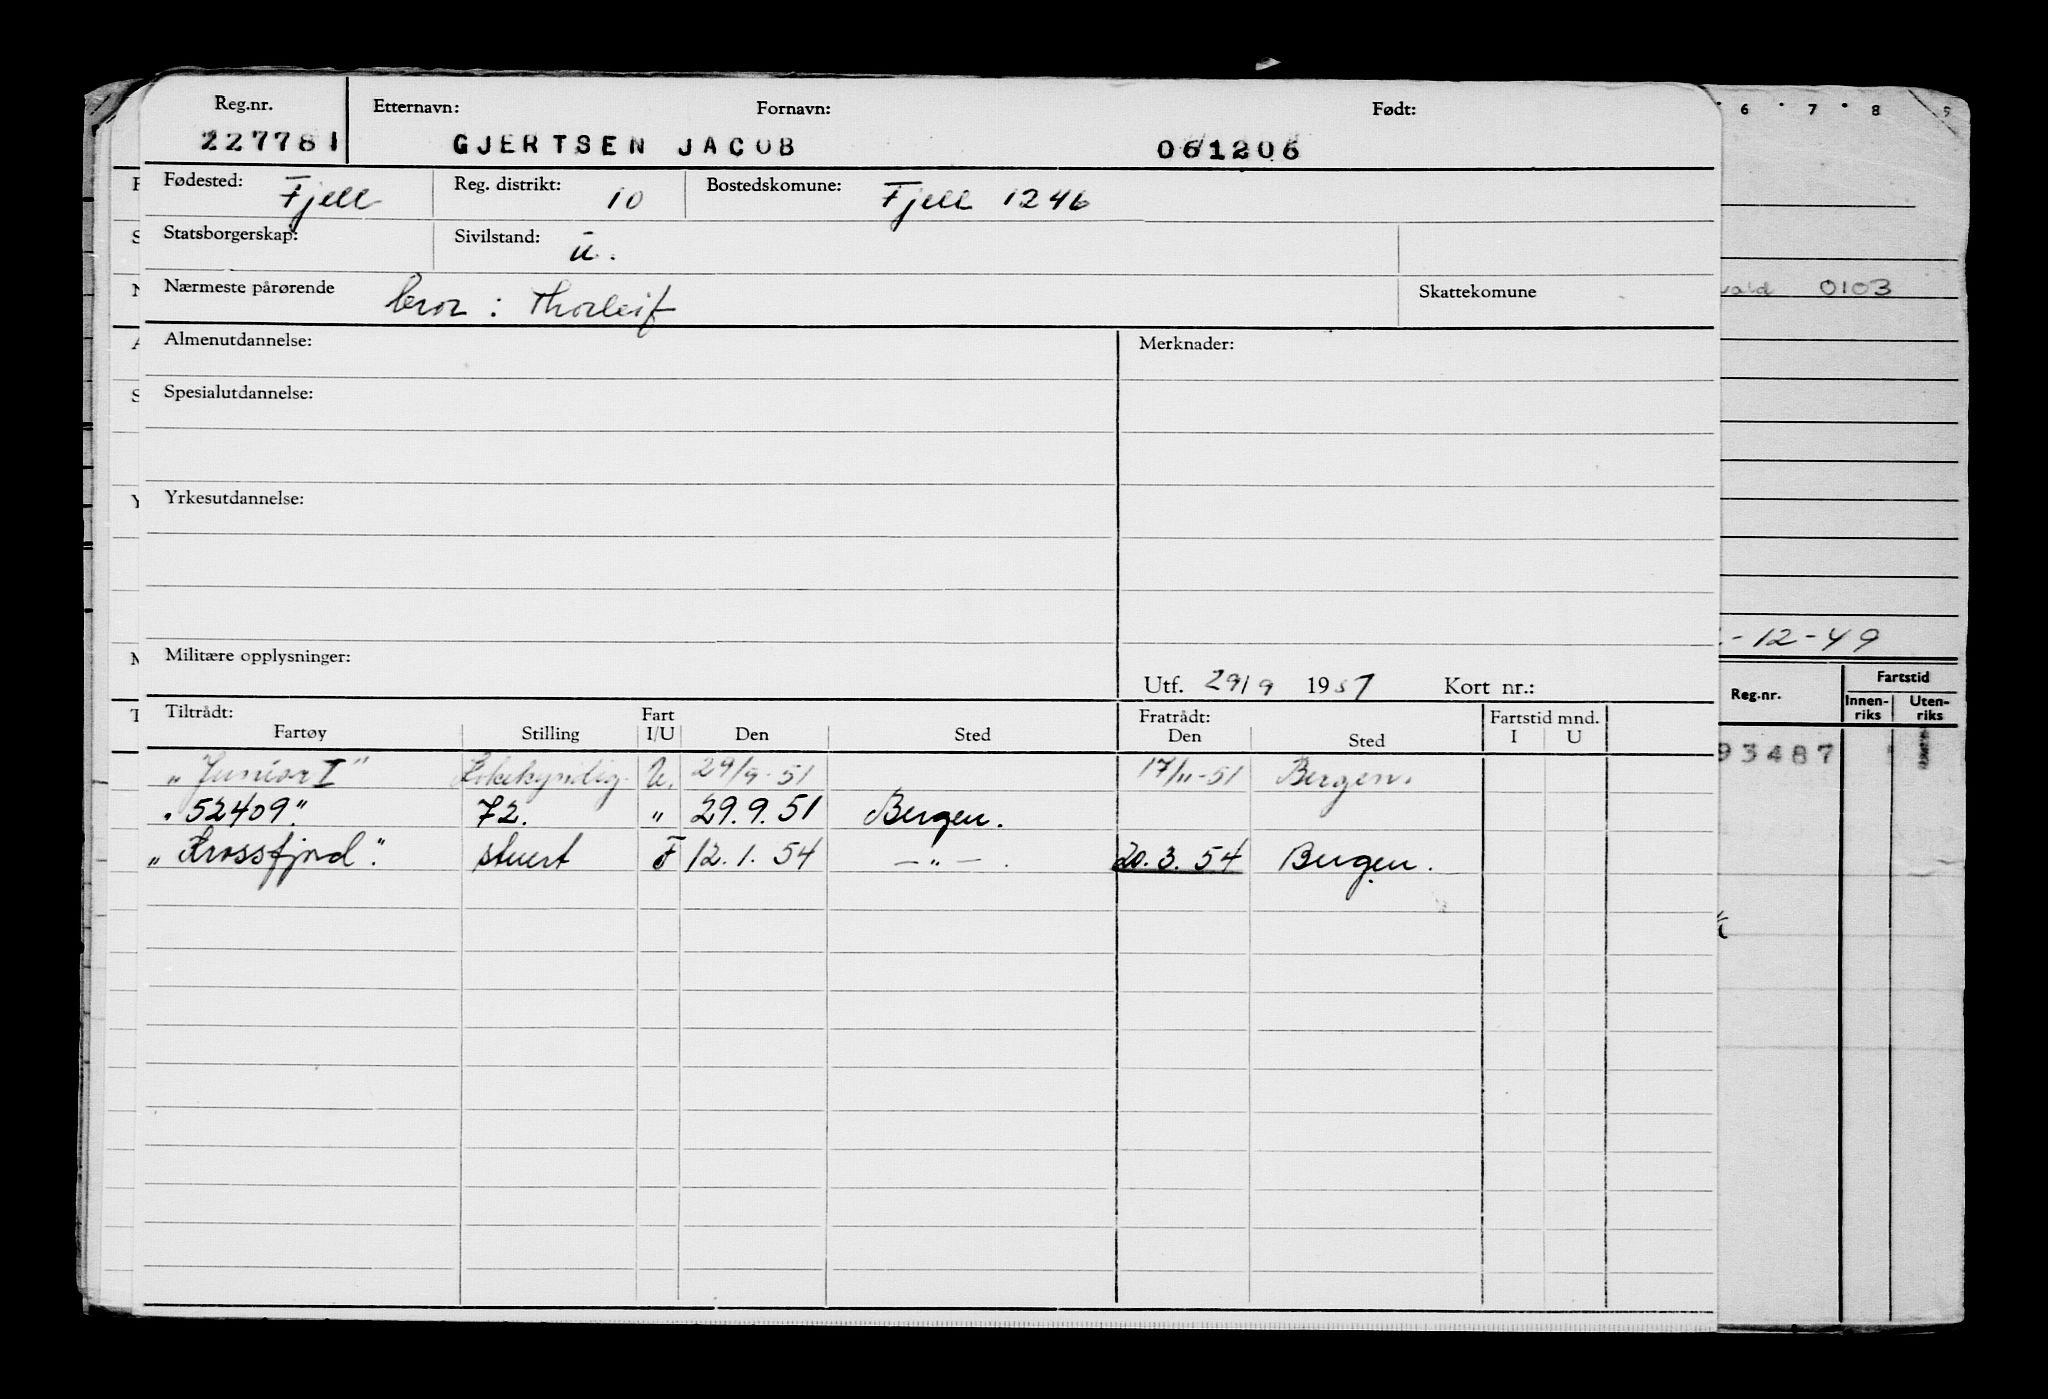 Reg.nr. Etternavn: Fornavn: Født:
227781 GJERTSEN JACOB 061206
Fødested: Fjell Reg. distrikt: 10 Bostedskomune: Fjell 1246
Statsborgerskap: Sivilstand: u.
Nærmeste pårørende bror : Thorleif Skattekomune
Almenutdannelse: Merknader:
Spesialutdannelse:
Yrkesutdannelse:
Militære opplysninger:
Utf. 29/9 1951 Kort nr.:
Tiltrådt: Fart Fratrådt: Fartstid mnd.
Fartøy Stilling I/U Den Sted Den Sted I U
"Junior I" Kokekyndig U. 29/9-51 17/11-51 Bergen.
"52409." 72. " 29.9.51 Bergen.
"Krossfjord". stuert F 12.1.54 —"— 20.3.54 Bergen.
6 7 8 9
0103
-12-49
Reg.nr. Fartstid
Innen-riks Uten-riks
93487